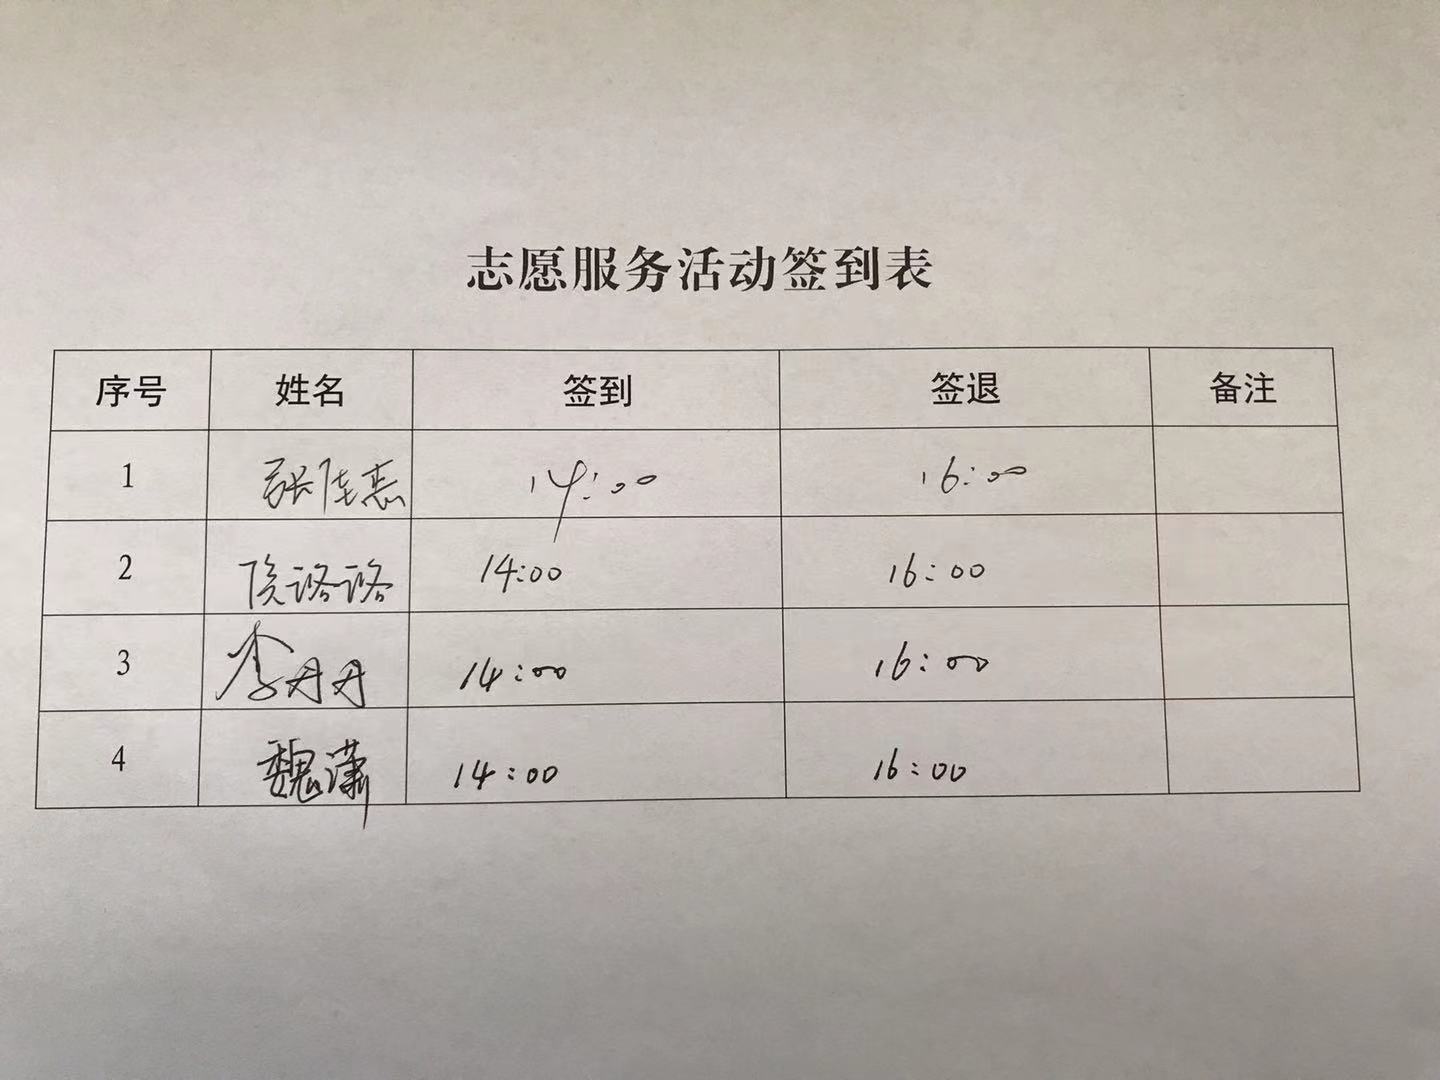 志愿服务活动签到表
序号 姓名 签到 签退 备注
1 张佳惠 14:00 16:00
2 14:00 16:00
3 李丹丹 14:00 16:00
4 魏潇 14:00 16:00